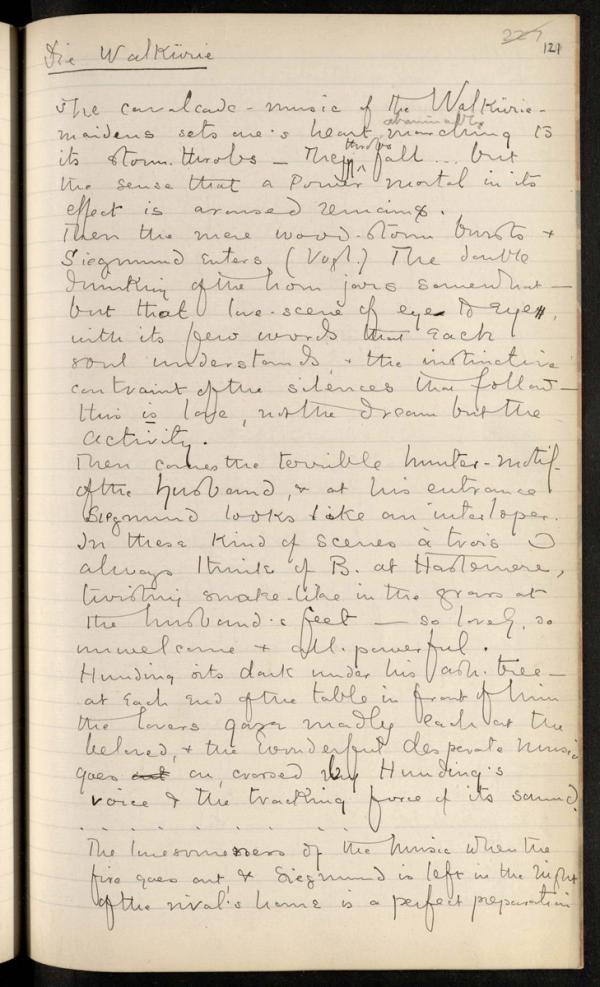 227
121
Die Walküre
The cavalcade-music of the Walküre-
abominable
maidens sets one's heart marching to
throbs
its storm-throbs — They fall ... but
the sense that a Power mortal in its
effect is aroused remains.
Then the mere wood-storm bursts &
Siegmund enters (Vogl.) The double
drinking of the horn jars somewhat —
but that love-scene of eye to eye,
with its few words that each
soul understands, & the instinctive
constraint of the silences that follow —
this is love, not the dream but the
activity.
Then comes the terrible hunter-motif
of the husband, & at his entrance
Siegmund looks like an interloper.
In these kind of scenes à trois I
always think of B. at Haslemere,
twisting snake-like in the grass at
the husband's feet — so lovely, so
unwelcome & all-powerful.
Hunding sits dark under his ash-tree —
at each end of the table in front of him
the lovers gaze madly each at the
beloved, & the wonderful desperate music
goes out on, crossed by Hunding's
voice & the tracking force of its sound.
. . . . . . . .
The lonesomeness of the music when the
fire goes out, & Siegmund is left in the night
of the rival's home is a perfect preparation